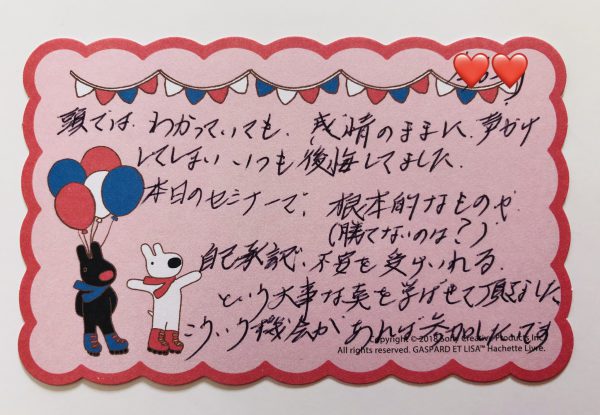 頭では、わかっていても、感情のままに、声かけ
してしまい、いつも後悔してました。
本日のセミナーで、根本的なものや
(勝てないのは?)
自己承認、不安を受けいれる。
という大事な事を学ばせて頂きました
こういう機会があれば参加したいです
Copyright © 2018 Sony Creative Products Inc.
All rights reserved. GASPARD ET LISA™ Hachette Livre.